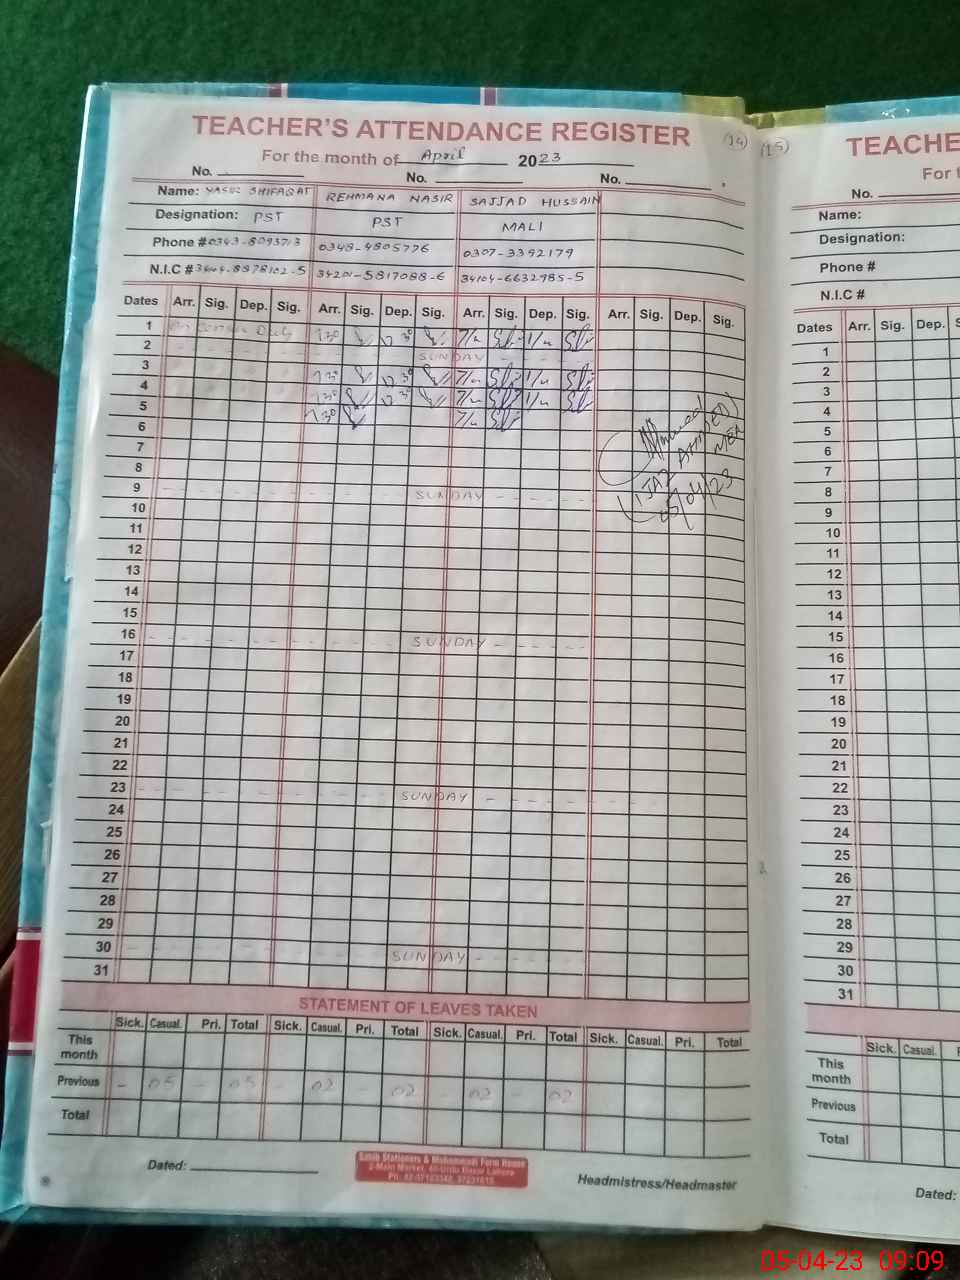 TEACHER'S ATTENDANCE REGISTER (14)
For the month of April 2023
No. No. No.
Name: YASIR SHIFAQAT REHMANA NASIR SAJJAD HUSSAIN
Designation: PST PST MALI
Phone # 0348-4805776 0307-3392179
N.I.C # 34201-5817088-6 34104-6632985-5
Dates Arr. Sig. Dep. Sig. Arr. Sig. Dep. Sig. Arr. Sig. Dep. Sig. Arr. Sig. Dep. Sig.
1 On Census Duty 7 30 12 30
2 SUNDAY
3 7 30 12 30
4 7 30 12 30
5 7 30
6
7
8
9 SUNDAY
10
11
12
13
14
15
16 SUNDAY
17
18
19
20
21
22
23 SUNDAY
24
25
26
27
28
29
30 SUNDAY
31
IJAZ AHMED
05/04/23
STATEMENT OF LEAVES TAKEN
Sick. Casual. Pri. Total Sick. Casual. Pri. Total Sick. Casual. Pri. Total Sick. Casual. Pri. Total
This month
Previous - 05 - 05 - 02 - 02 - 02 - 02
Total
Dated:
2-Main Market, 40-Urdu Bazar Lahore
Headmistress/Headmaster
(15) TEACHE
For t
No.
Name:
Designation:
Phone #
N.I.C #
Dates Arr. Sig. Dep. S
1
2
3
4
5
6
7
8
9
10
11
12
13
14
15
16
17
18
19
20
21
22
23
24
25
26
27
28
29
30
31
Sick. Casual. P
This month
Previous
Total
Dated:
05-04-23 09:09